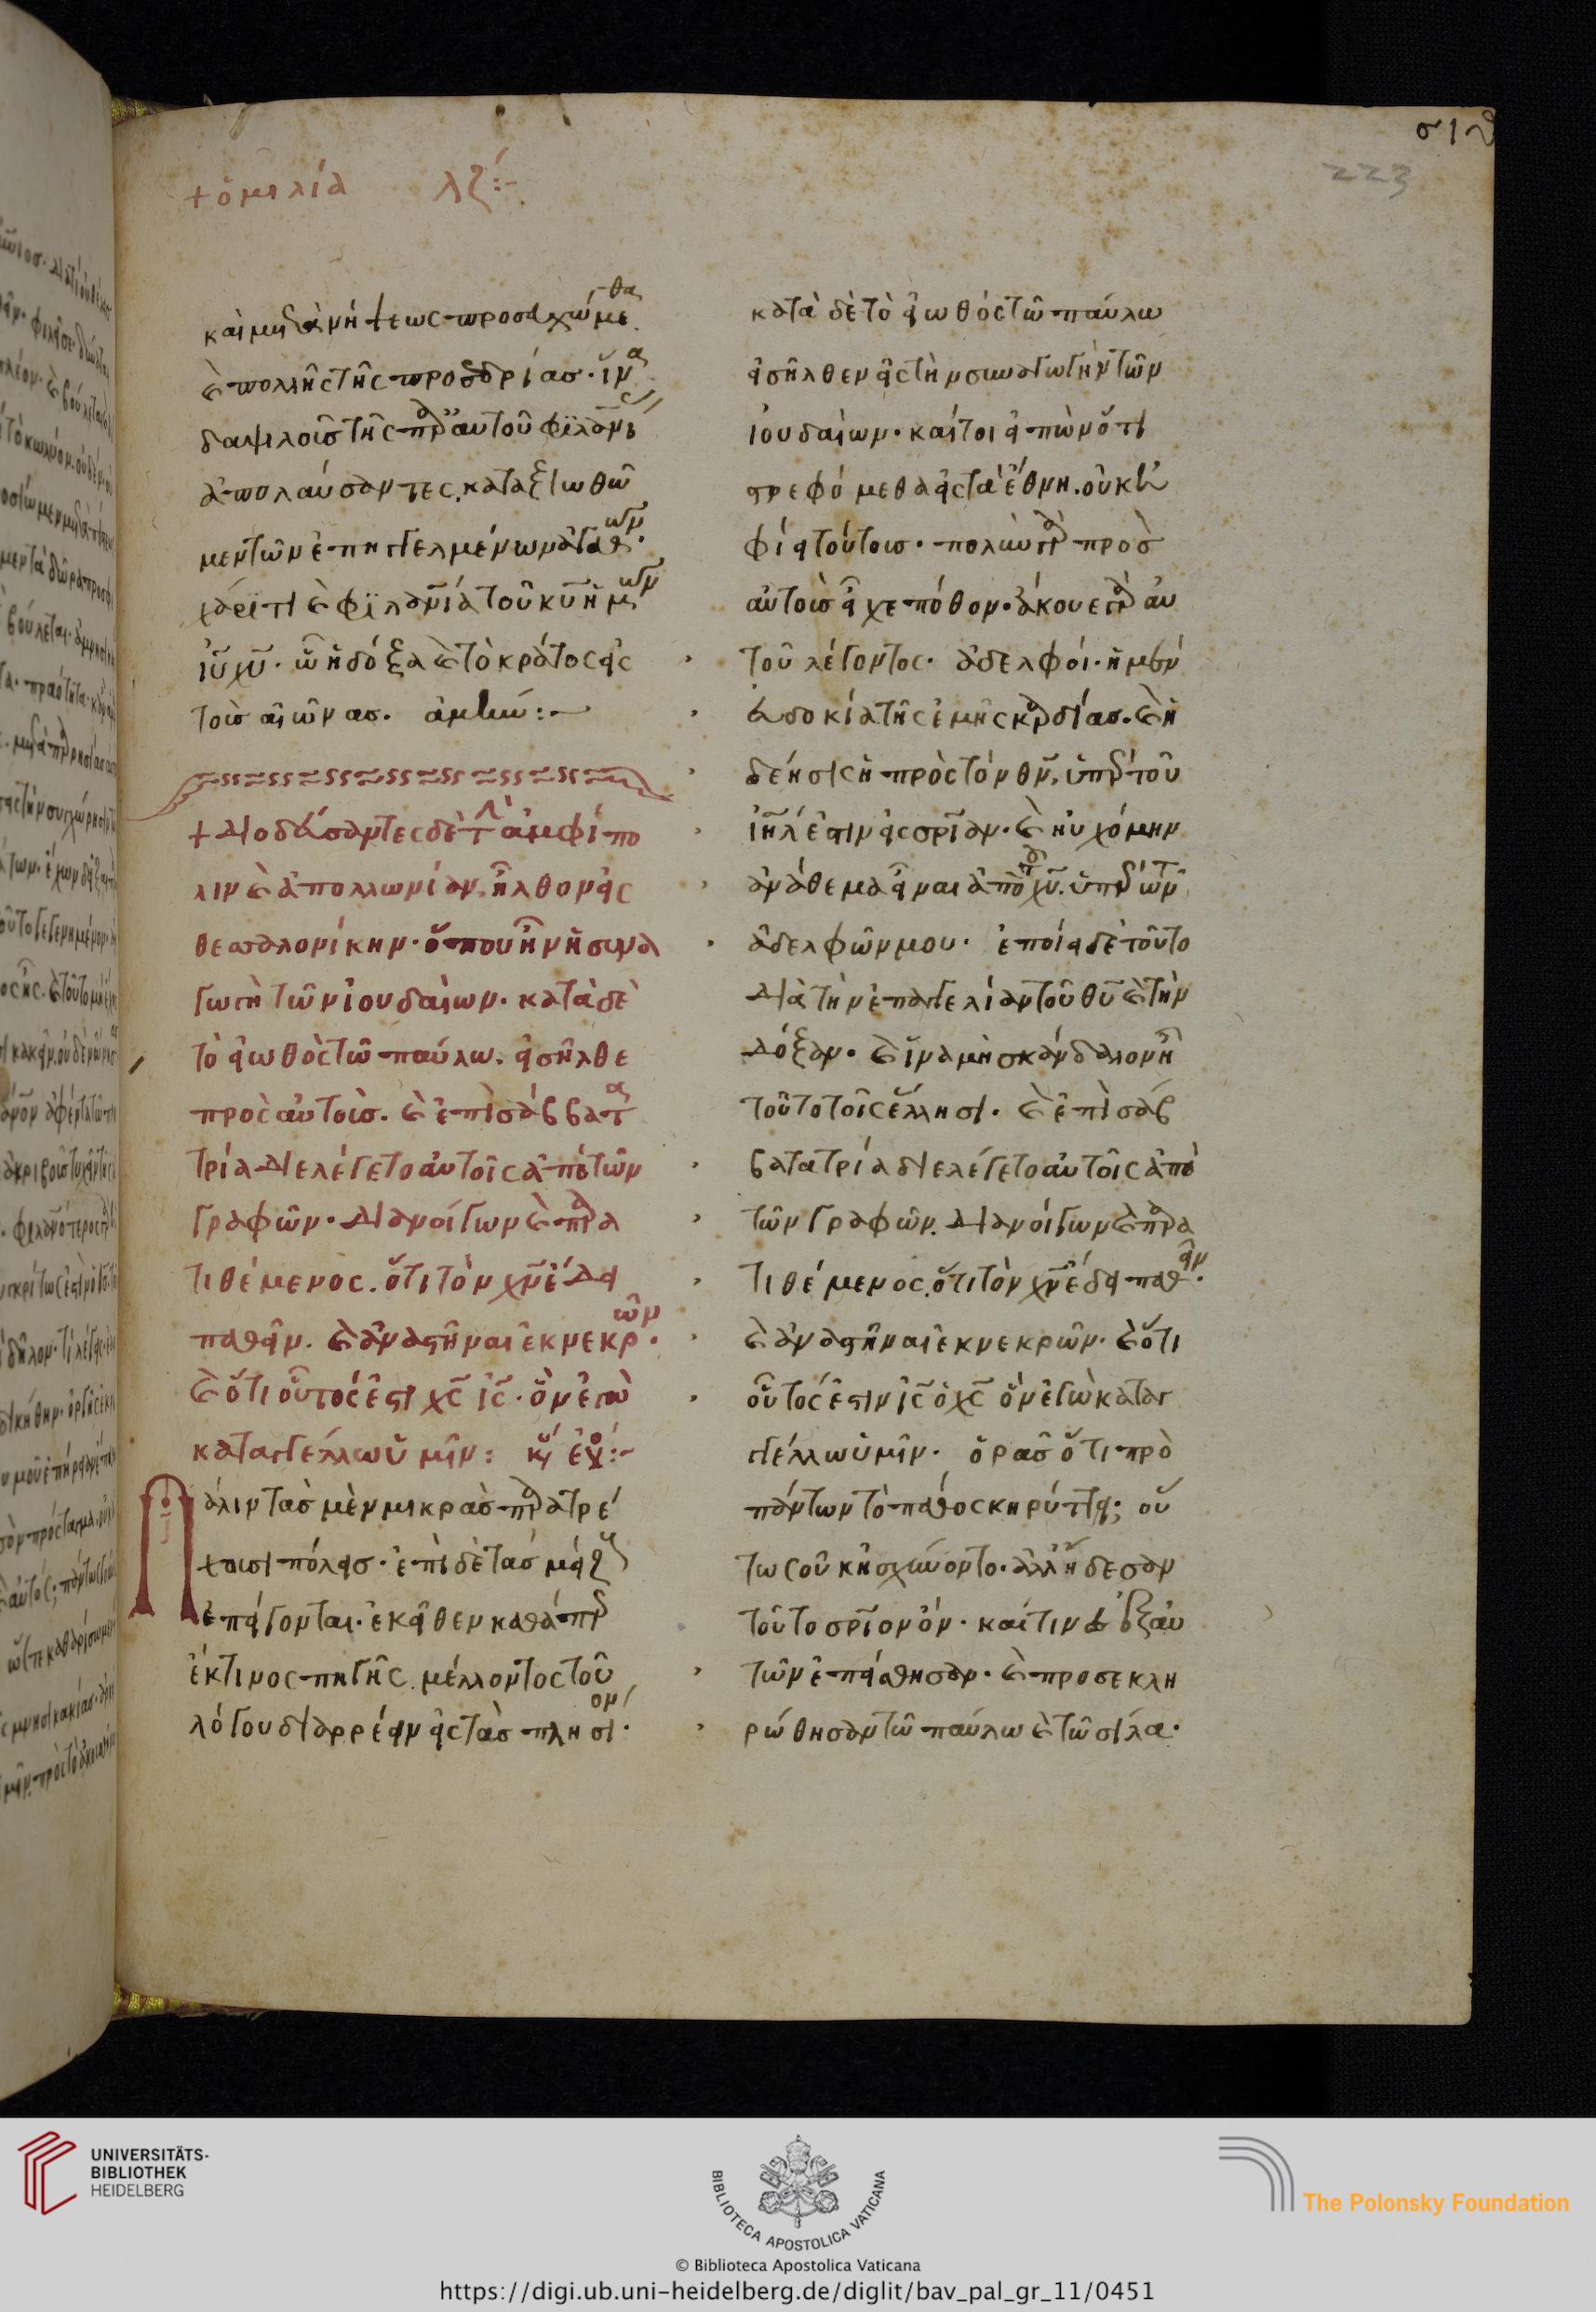 σιθ
223
+ ὁμιλία λζ΄:-
καὶ μετὰ νήψεως προσευχώμεθα
καὶ πολλῆς τῆς προσεδρίας· ἵνα
δαψιλοῦς τῆς παρ' αὐτοῦ φιλαν̅ι
ἀπολαύσαντες, καταξιωθῶ
μεν τῶν ἐπηγγελμένων ἀγαθῶν·
χάριτι καὶ φιλαν̅ία τοῦ κ̅υ̅ ἡμῶν
ι̅υ̅ χ̅υ̅· ὧ ἡ δόξα καὶ τὸ κράτος εἰς
τοὺς αἰῶνας. ἀμήν:-
+ Διοδεύσαντες δὲ τὴν ἀμφίπο
λιν καὶ ἀπολλωνίαν, ἦλθον εἰς
θεσσαλονίκην· ὅπου ἦν ἡ συνα
γωγὴ τῶν ἰουδαίων· κατὰ δὲ
τὸ εἰωθὸς τῶ παύλω, εἰσῆλθε
πρὸς αὐτούς. καὶ ἐπὶ σάββατα
τρία διελέγετο αὐτοῖς ἀπὸ τῶν
γραφῶν· διανοίγων καὶ παρα
τιθέμενος, ὅτι τὸν χ̅ν̅ ἔδει
παθεῖν. καὶ ἀναστῆναι ἐκ νεκρῶν·
καὶ ὅτι οὗτός ἐστι χ̅ς̅ ι̅ς̅· ὃν ἐγὼ
καταγγέλλω ὑμῖν:
Πάλιν τὰς μὲν μικρὰς παρατρέ
χουσι πόλεις· ἐπὶ δὲ τὰς μείζους
ἐπείγονται· ἐκεῖθεν καθάπερ
ἔκ τινος πηγῆς μέλλοντος τοῦ
λόγου διαρρέειν εἰς τὰς πλησίον·
κατὰ δὲ τὸ εἰωθὸς τῶ παύλω
εἰσῆλθεν εἰς τὴν συναγωγὴν τῶν
ἰουδαίων· καίτοι εἰπὼν ὅτι
στρεφόμεθα εἰς τὰ ἔθνη. οὐκ ἠ
φίει τούτους· πολὺν γὰρ πρὸς
αὐτοὺς εἶχε πόθον· ἄκουε γὰρ αὐ
τοῦ λέγοντος· ἀδελφοί· ἡ μὲν
εὐδοκία τῆς ἐμῆς καρδίας. καὶ ἡ
δέησις ἡ πρὸς τὸν θ̅ν̅, ὑπὲρ τοῦ
ι̅η̅λ̅ ἐστιν εἰς σ̅ρ̅ίαν· καὶ ηὐχόμην
ἀνάθεμα εἶναι ἀπὸ τοῦ χ̅υ̅. ὑπὲρ τῶν
ἀδελφῶν μου· ἐποίει δὲ τοῦτο
διὰ τὴν ἐπαγγελίαν τοῦ θ̅υ̅ καὶ τὴν
δόξαν· καὶ ἵνα μὴ σκάνδαλον ἦ
τοῦτο τοῖς ἕλλησι. καὶ ἐπὶ σάβ
βατα τρία διελέγετο αὐτοῖς ἀπὸ
τῶν γραφῶν. διανοίγων καὶ παρα
τιθέμενος, ὅτι τὸν χ̅ν̅ ἔδει παθεῖν·
καὶ ἀναστῆναι ἐκ νεκρῶν· καὶ ὅτι
οὗτός ἐστιν ι̅ς̅ ὁ χ̅ς̅ ὃν ἐγὼ καταγ
γέλλω ὑμῖν· ὁρᾶς ὅτι πρὸ
πάντων τὸ πάθος κηρύττει; οὕ
τως οὐκ ἠσχύνοντο· ἀλλ' ἤδεσαν
τοῦτο σ̅ρ̅ιον ὄν· καί τινες ἐξ αὐ
τῶν ἐπείσθησαν· καὶ προσεκλη
ρώθησαν τῶ παύλω καὶ τῶ σίλα·
UNIVERSITÄTS-
BIBLIOTHEK
HEIDELBERG
BIBLIOTECA APOSTOLICA VATICANA
The Polonsky Foundation
© Biblioteca Apostolica Vaticana
https://digi.ub.uni-heidelberg.de/diglit/bav_pal_gr_11/0451